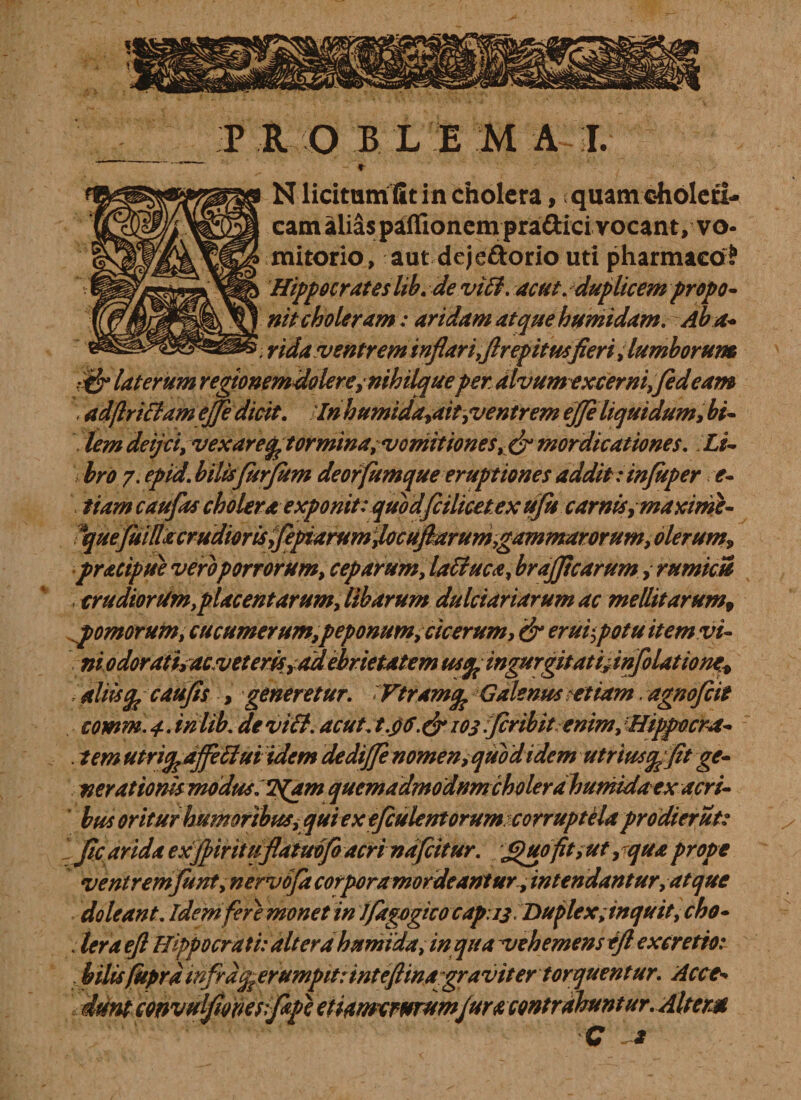 PROBLEMA I.
AN licitum ſit in cholera, quam choleri-
cam aliàs paſſionem practici vocant, vo-
mitorio, aut dejectorio uti pharmaco?
Hippocrates lib. de vict. acut. duplicem propo-
nit choleram: aridam atque humidam. Ab a-
rida ventrem inflari, ſtrepitus fieri, lumborum
& laterum regionem dolere, nihilque per alvum excerni, ſed eam
adſtrictam eſſe dicit. In humida, ait, ventrem eſſe liquidum, bi-
lem deijci, vexareq́; tormina, vomitiones, & mordicationes. Li-
bro 7. epid. bilis ſurſum deorſumque eruptiones addit: inſuper e-
tiam cauſas choleræ exponit: quòd ſcilicet ex uſu carnis, maximè-
que ſuillæ crudioris, ſepiarum, locuſtarum, gammarorum, olerum,
præcipuè verò porrorum, ceparum, lactucæ, braſſicarum, rumicū
crudiorūm, placentarum, libarum dulciariarum ac mellitarum,
pomorum, cucumerum, peponum, cicerum, & erui; potu item vi-
ni odorati, ac veteris, ad ebrietatem usq́; ingurgitati, inſolatione,
aliisq́; cauſis, generetur. Vtramq́; Galenus etiam agnoſcit
comm. 4. in lib. de vict. acut. t. 96. & 103. ſcribit enim, Hippocra-
tem utriq́; affectui idem dediſſe nomen, quòd idem utriusq́; ſit ge-
nerationis modus. Nam quemadmodum cholera humida ex acri-
bus oritur humoribus, qui ex eſculentorum corruptela prodierūt:
ſic arida ex ſpiritu flatuoſo acri naſcitur. Quo fit, ut, quæ prope
ventrem ſunt, nervoſa corpora mordeantur, intendantur, atque
doleant. Idem ferè monet in Iſagogico cap. 13. Duplex, inquit, cho-
lera eſt Hippocrati: altera humida, in qua vehemens eſt excretio:
bilis ſupra infraq́; erumpit: inteſtina graviter torquentur. Acce-
dunt convulſiones: ſæpè etiam crurum ſuræ contrahuntur. Altera
C 2